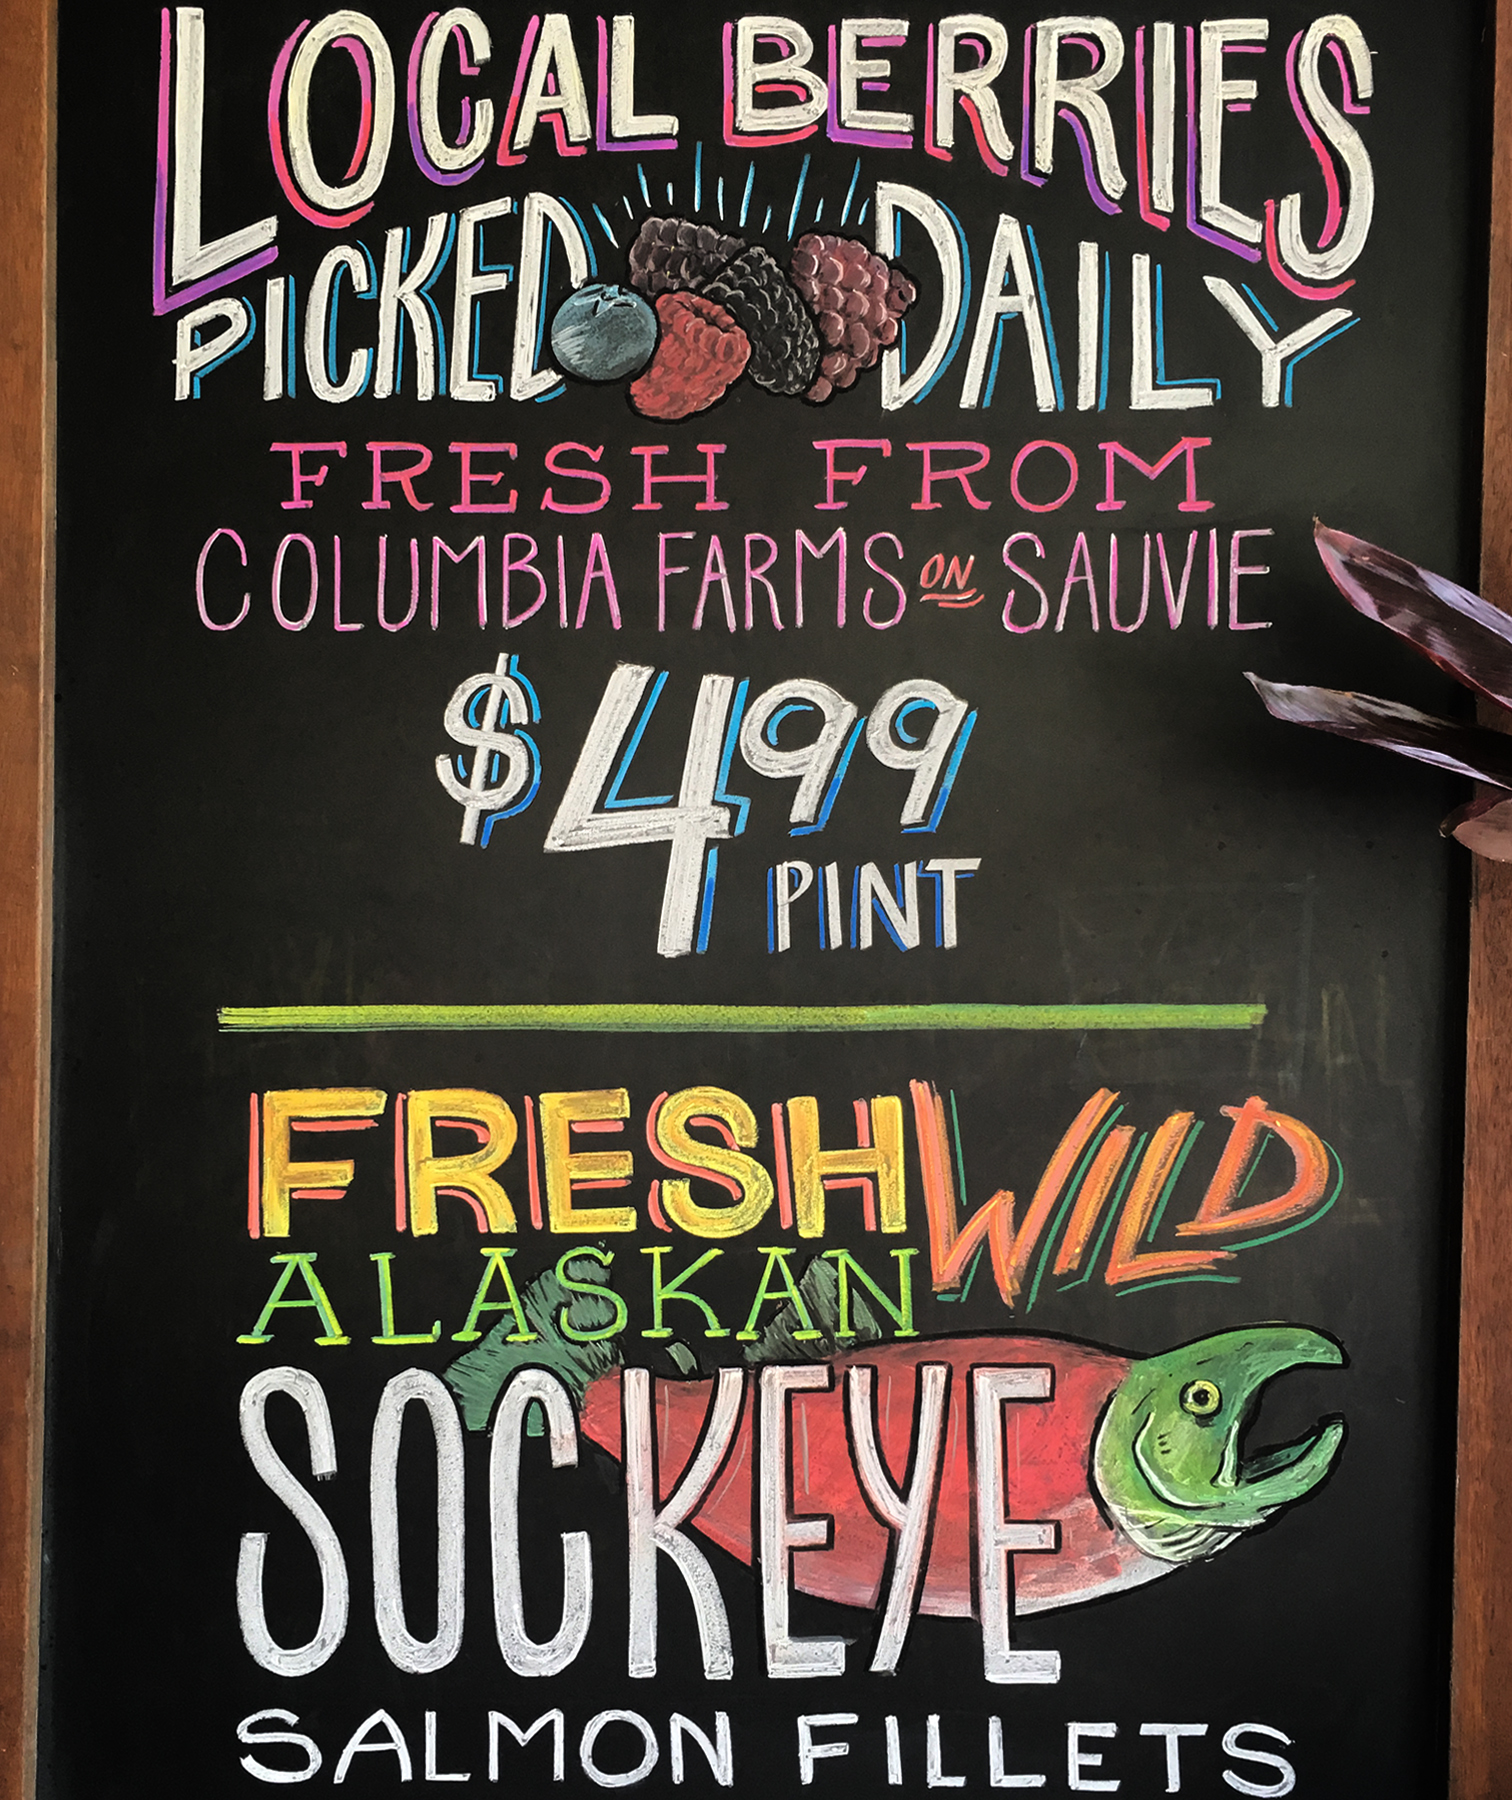 LOCAL BERRIES
PICKED DAILY
FRESH FROM
COLUMBIA FARMS ON SAUVIE
$4.99
PINT
FRESH WILD
ALASKAN
SOCKEYE
SALMON FILLETS